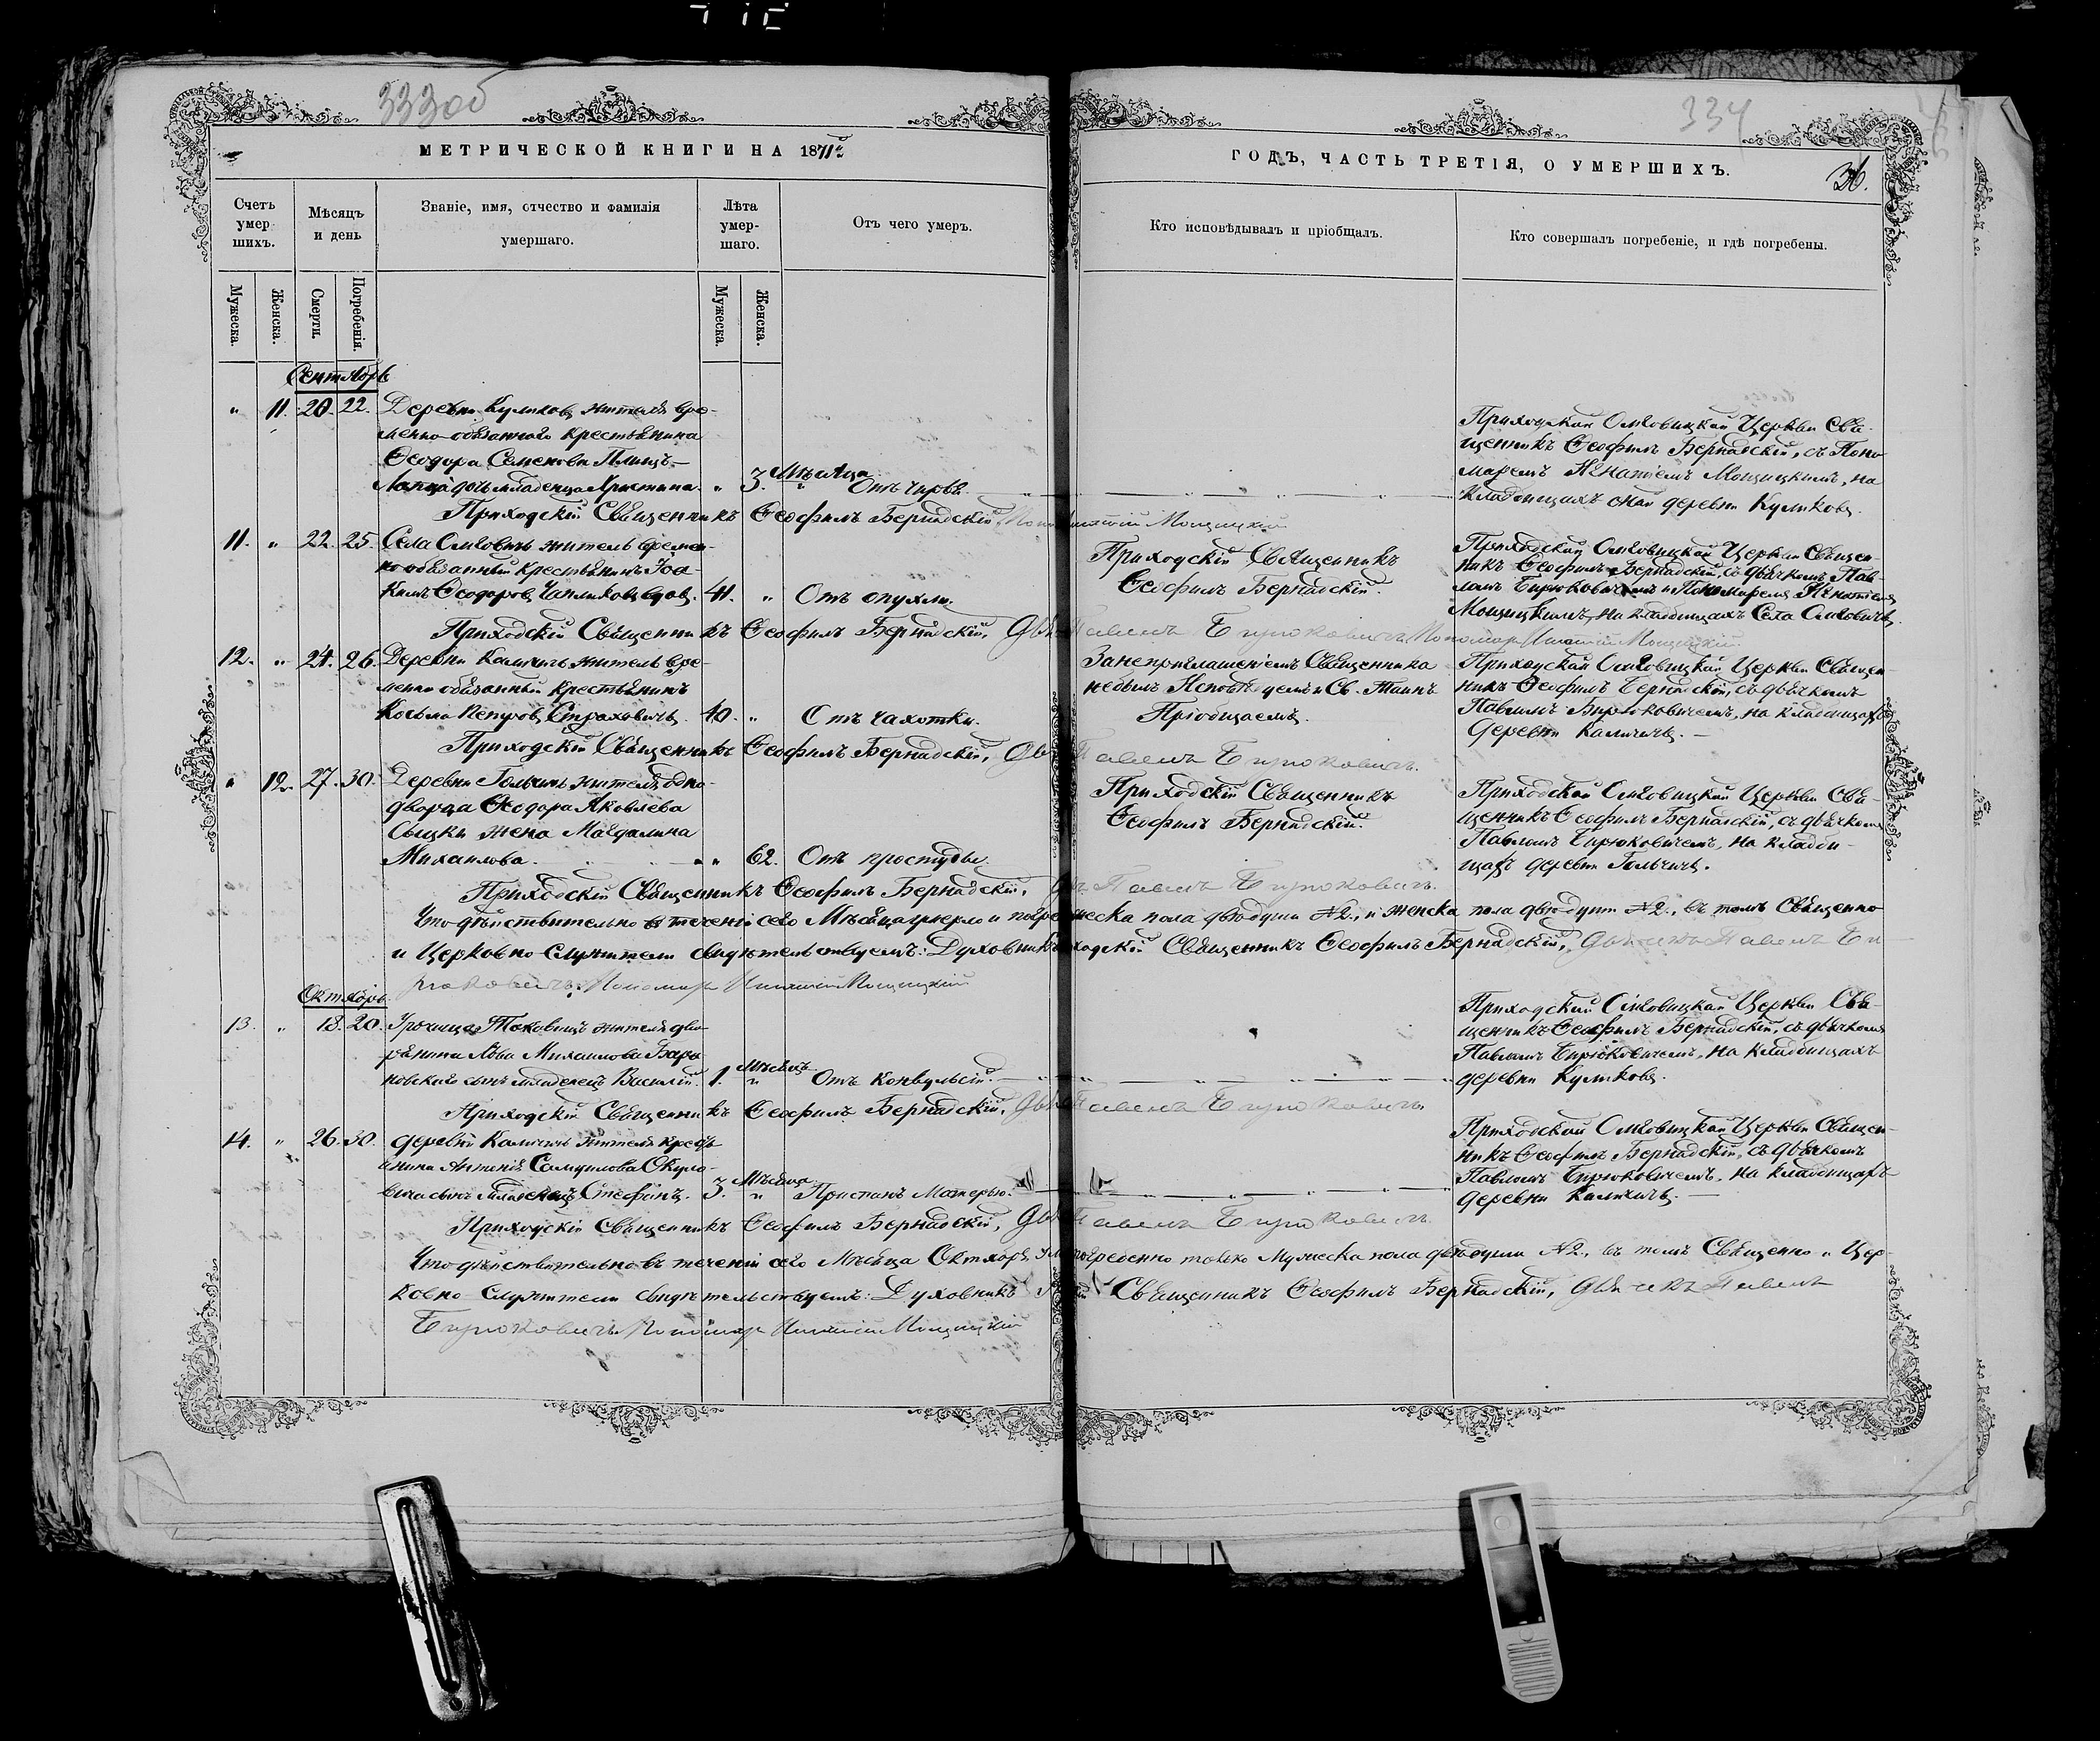 333об
МЕТРИЧЕСКОЙ КНИГИ НА 1871й
Счетъ умер шихъ.
Мѣсяцъ и день
Званіе, имя, отчество и фамилія умершаго.
Лѣта умер- шаго.
Отъ чего умеръ.
Мужеска.
Женска.
Смерти.
Погребенія.
Мужеска.
Женска.
334
ГОДЪ, ЧАСТЬ ТРЕТІЯ, О УМЕРШИХЪ.
36.
Кто исповѣдывалъ и пріобщалъ.
Кто совершалъ погребеніе, и гдѣ погребены.
Сентябрь
" 11. 20. 22.
Деревни Куликовъ жителя вре-
менно-обязаннаго крестьянина
Ѳеодора Семенова
дочь младенца Христина. " 3. Мѣсяца
Приходской Церкви Свя-
щенникъ Ѳеофилъ Бернадскій, съ Поно-
маремъ Игнатіемъ Мощицкимъ, на
кладбищахъ оной деревни Куликовъ.
Приходскій Священникъ Ѳеофилъ Бернадскій, Игнатій Мощицкій
11. " 22. 25.
Села житель времен-
но обязанный крестьянинъ Іоа-
кимъ Ѳеодоровъ вдов. 41. " Отъ опухли.
Приходскій Священникъ
Ѳеофилъ Бернадскій.
Приходской Церкви Священ-
никъ Ѳеофилъ Бернадскій, съ дьячкомъ Пав-
ломъ Бируковичемъ и Пономаремъ Игнатіемъ
Мощицкимъ, на кладбищахъ Села
Приходскій Священникъ Ѳеофилъ Бернадскій, Павелъ Бируковичъ Пономарь Игнатій Мощицкій
12. " 24. 26.
Деревни Каличичъ житель вре-
менно обязанный крестьянинъ
Косьма Петровъ Страховичъ. 40. " Отъ чахотки.
За неприглашеніемъ Священника
небылъ Исповѣдуемъ и Св. Таинъ
Пріобщаемъ.
Приходской Церкви Священ-
никъ Ѳеофилъ Бернадскій, съ дьячкомъ
Павломъ Бирюковичемъ, на кладбищахъ
деревни Каличичъ.
Приходскій Священникъ Ѳеофилъ Бернадскій, Павелъ Бируковичъ.
" 12. 27. 30.
Деревни Гольчичъ жителя одно-
дворца Ѳеодора Яковлева
жена Магдалина
Михаилова. " 62. Отъ простуды.
Приходскій Священникъ
Ѳеофилъ Бернадскій.
Приходской Церкви Свя-
щенникъ Ѳеофилъ Бернадскій, съ дьячкомъ
Павломъ Бирюковичемъ, на кладби-
щахъ деревни Гольчичъ.
Приходскій Священникъ Ѳеофилъ Бернадскій, Павелъ Бируковичъ.
Что дѣйствительно въ теченіи сего Мѣсяца умерло и погре ческа пола двѣ души №2., и женска пола двѣ души №2., въ томъ Священно
и Церковно-служители свидѣтельствуемъ: Духовникъ Священникъ Ѳеофилъ Бернадскій, дьячекъ Павелъ Би-
руковичъ, Пономарь Игнатій Мощицкій
Октябрь
13. " 18. 20.
Урочища жителя дво-
рянина Льва Михаилова Бара-
новскаго сынъ младенецъ Василій. 1. Мѣсяцъ " Отъ конвульсій.
Приходской Церкви Свя-
щенникъ Ѳеофилъ Бернадскій, съ дьячкомъ
Павломъ Бирюковичемъ, на кладбищахъ
деревни Куликовъ.
Приходскій Священникъ Ѳеофилъ Бернадскій, Павелъ Бируковичъ.
14. " 26. 30.
деревни Каличичъ жителя крестья-
нина Антонія Самуилова
сынъ младенецъ Стефанъ. 3. Мѣсяца " Приспанъ Матерью.
Приходской Церкви Священ-
никъ Ѳеофилъ Бернадскій, съ дьячкомъ
Павломъ Бирюковичемъ, на кладбищахъ
деревни Каличичъ.
Приходскій Священникъ Ѳеофилъ Бернадскій, Павелъ Бируковичъ.
Что дѣйствительно въ теченіи сего Мѣсяца Октября погребенно только Мужеска пола двѣ души №2., въ томъ Священно и Цер-
ковно-служители свидѣтельствуемъ: Духовникъ Священникъ Ѳеофилъ Бернадскій, дьячекъ Павелъ
Бируковичъ, Пономарь Игнатій Мощицкій